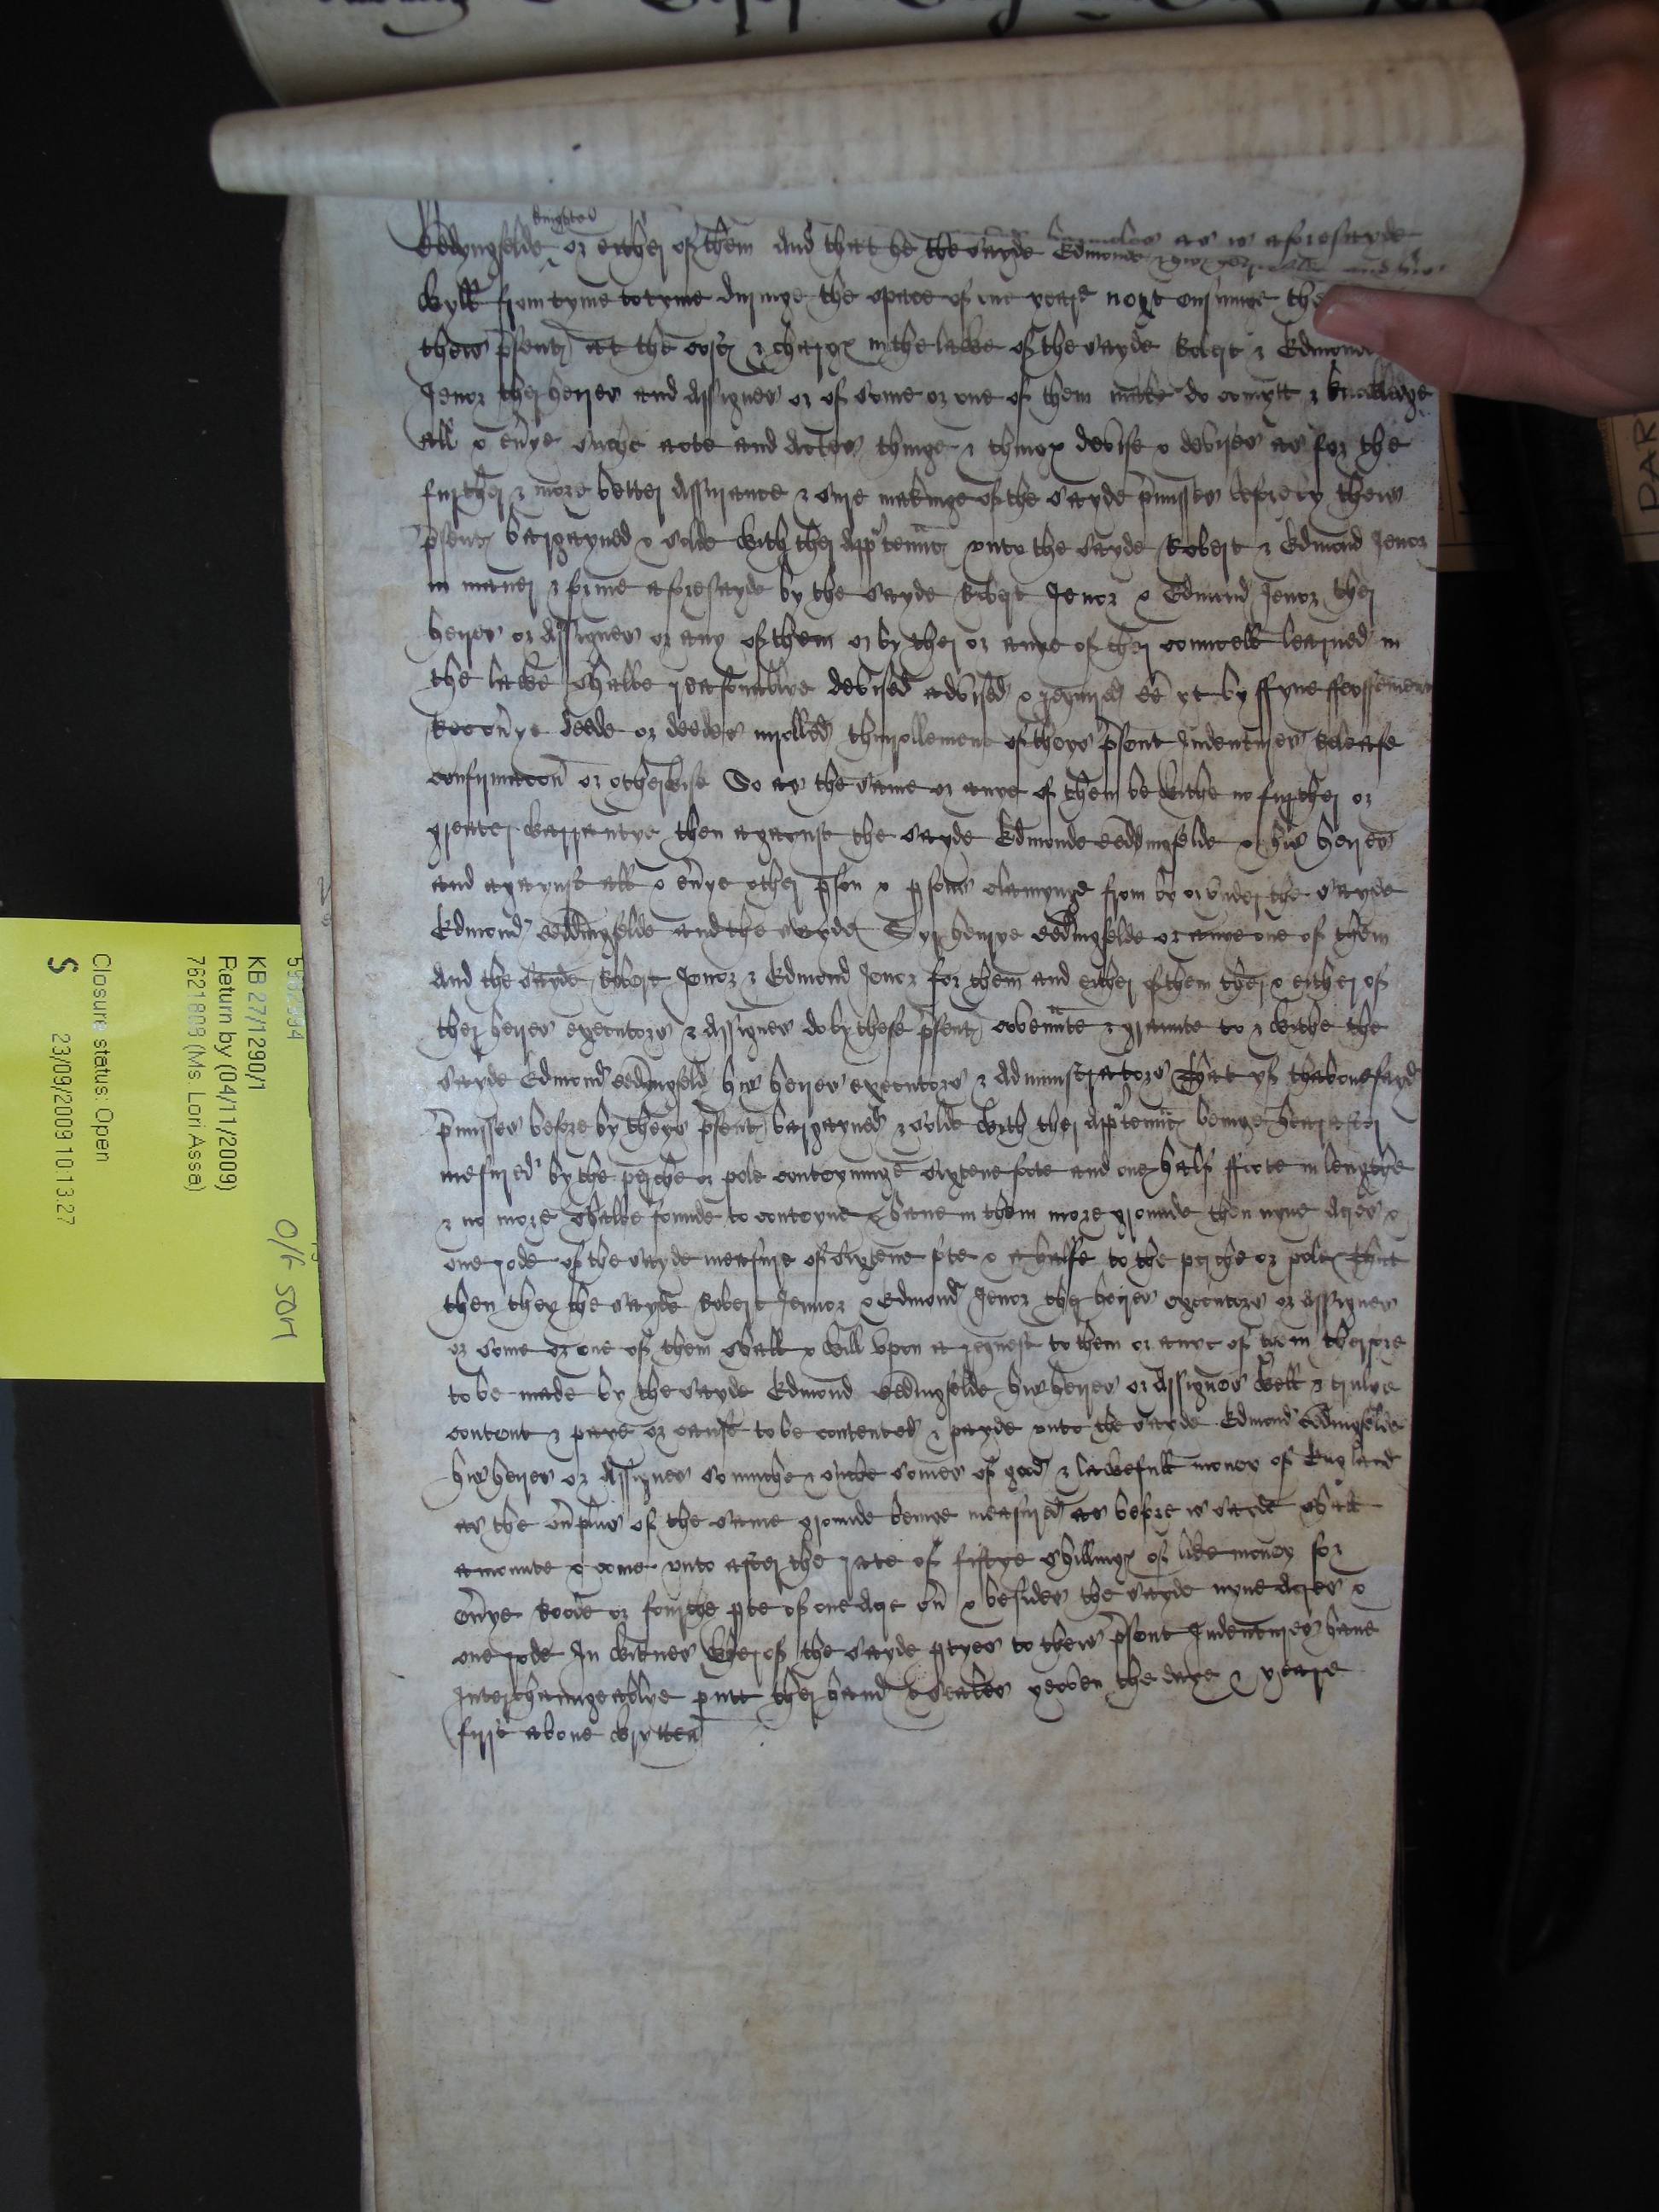 knightes
Beddyngfelde or either of them And that he the sayde Edmonde as is aforesayde
wyll from tyme to tyme duringe the space of one yeare next ensuinge the
theis p̄sentꝭ at the costꝭ & chargꝭ in the lawe of the sayde Robert & Edmond
Jenor ther heyres and Assignes or of some or one of them make do comytt & knowledge
all & eṽye suche acte and Actes thinge & thingꝭ devise & devises as for the
further & more better Assurance & sure makinge of the sayde p̄misses before by theis
p̄sentꝭ bargayned & solde with ther Apptennꝭ unto the sayde Robert & Edmond Jenor
in maner & forme aforesayde by the sayde Robert Jenor & Edmond Jenor ther
heyres or Assignes or any of them or by ther or anye of ther councell learned in
the lawe shalbe reasonablye devised advised & required be yt by ffyne ffeoffement
Recoṽye deede or deedes inrolled thinrollement of theys p̄sent Indentures release
confirmacon or otherwise So as the same or anye of them be withe no further or
greater warrantye then agaynst the sayde Edmonde beddingfelde & his heyres
and agaynst all & eṽye other pson & psons claimynge from by or under the sayde
Edmond beddingfelde and the sayde Syr henrye bedingfelde or anye one of them
And the sayde Robert Jenor & Edmond Jenor for them and either of them ther & either of
ther heyres executors & Assignes do by these p̄sentꝭ covennte & graunte to & withe the
sayde Edmond bedingfeld his heyres executors & Administrators That yf thabovesayd
p̄misses before by theys p̄sentꝭ bargayned & solde with ther Apptennꝭ beinge herafter
mesured by the perche or pole conteyninge sixtene foote and one half ffoote in lengthe
& no more shalbe founde to conteyne & have in them more grounde then nyne Acres &
one rode of the sayde measure of sixtene fote & a halfe to the perche or pole That
then they the sayde Robert Jennor & Edmond Jenor ther heyres executors or Assignes
or some or one of them shall & will upon a request to them or anye of them therfore
to be made by the sayde Edmond bedingfelde his heyres or Assignes well & trulye
content & paye or cause to be contented & payde unto the sayde Edmond beddingfelde
his heyres or Assignes so muche & suche somes of good & lawefull money of England
as the oṽplus of the same grounde beinge measured as before is sayde shall
amounte & come unto after the rate of fiftye shillingꝭ of like money for
eṽye Roode or fourthe pte of one Acre oṽ & besides the sayde nyne Acres &
one rode In witnes wherof the sayde ptyes to theis p̄sent Indentures have
Interchaungeablye putt ther hand & Seales yeoven the daye & yeare
first above wrytten
KB 27/1290/1
Return by (04/11/2009)
7621809 (Ms. Lori Asse)
Closure status: Open
S
23/09/2009 10:13:27
O/S
DAR